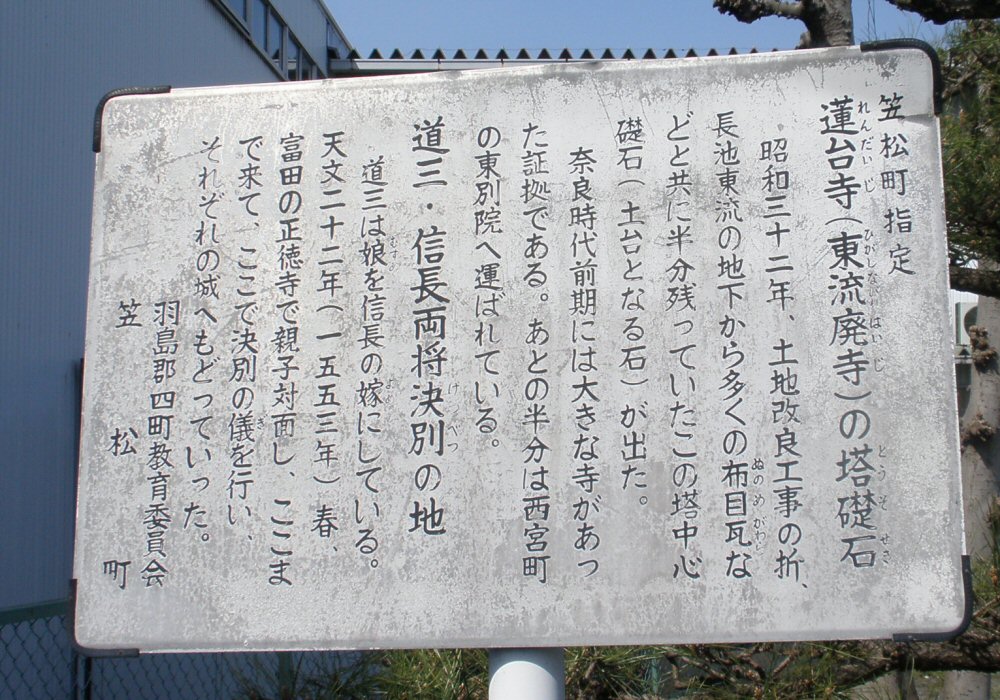 笠松町指定
蓮台寺(東流廃寺)の塔礎石
れんだいじ ひがしながれはいじ とうそせき
昭和三十二年、土地改良工事の折、
長池東流の地下から多くの布目瓦な
ぬのめがわら
どと共に半分残っていたこの塔中心
礎石(土台となる石)が出た。
奈良時代前期には大きな寺があっ
た証拠である。あとの半分は西宮町
の東別院へ運ばれている。
道三・信長両将決別の地
けつべつ
道三は娘を信長の嫁にしている。
むすめ よめ
天文二十二年(一五五三年)春、
富田の正徳寺で親子対面し、ここま
で来て、ここで決別の儀を行い、
ぎ
それぞれの城へもどっていった。
羽島郡四町教育委員会
笠松町